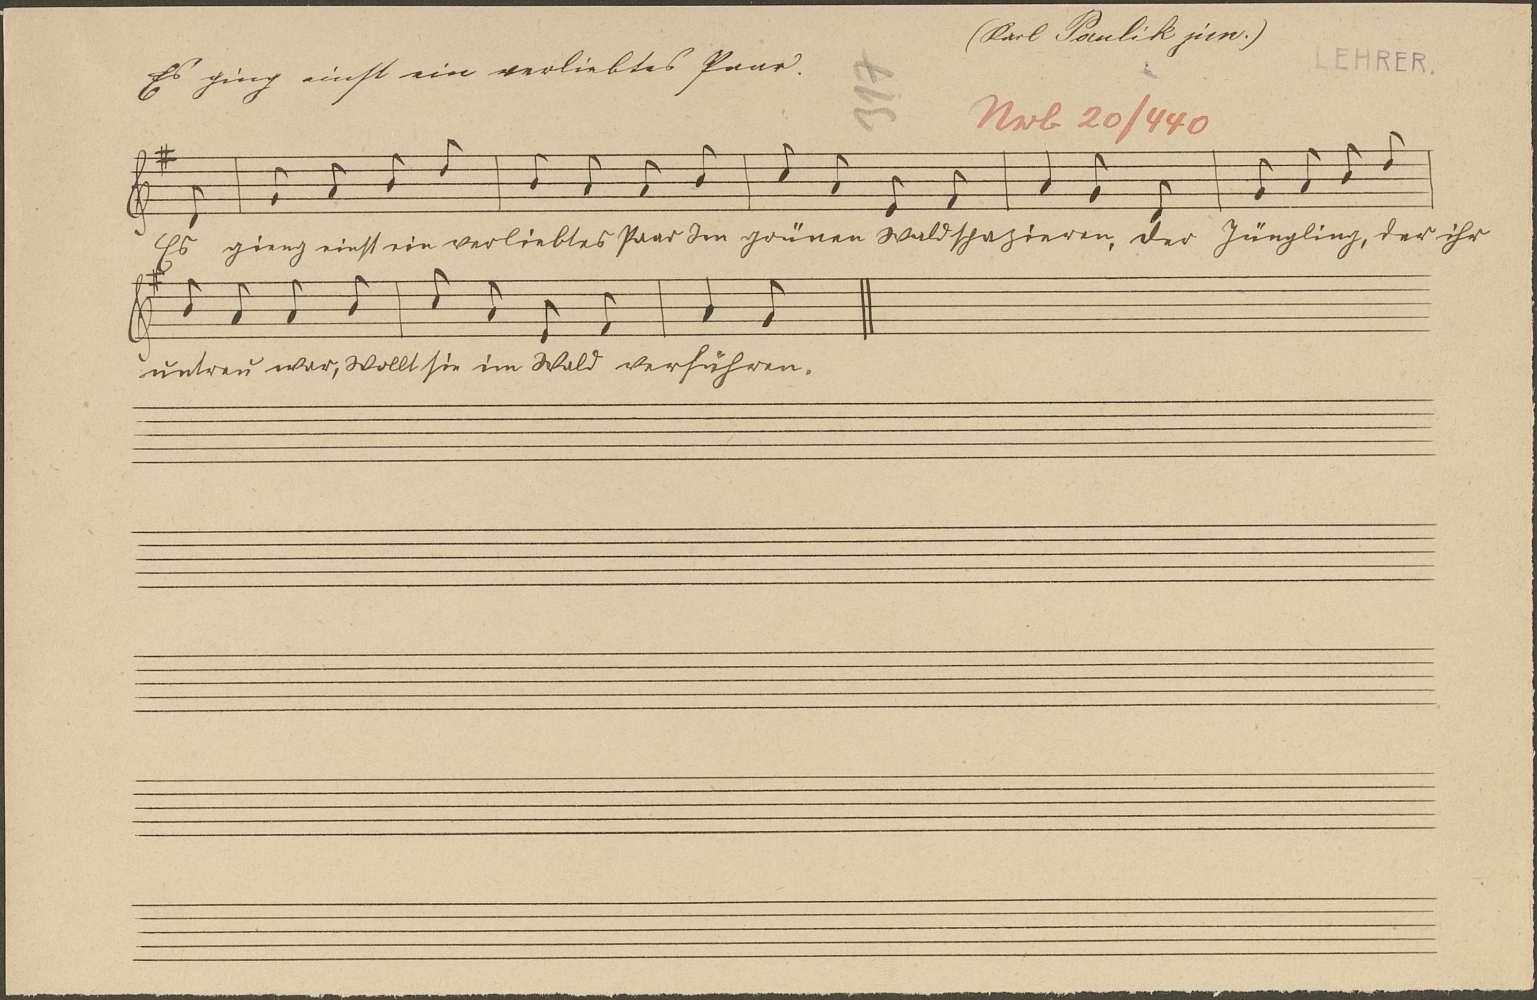 (Karl Paulik jun.)
LEHRER.
Es ging einst ein verliebtes Paar.
317
Nwb 20/440
Es gieng einst ein verliebtes Paar Im grünen Wald spazieren, der Jüngling, der ihr
untreu war, Wollt sie im Wald verführen.